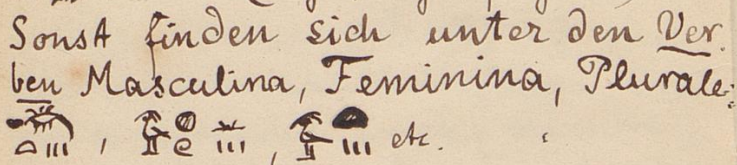 Sonst finden sich unter den Ver
ben Masculina, Feminina, Plurale:
, , etc.